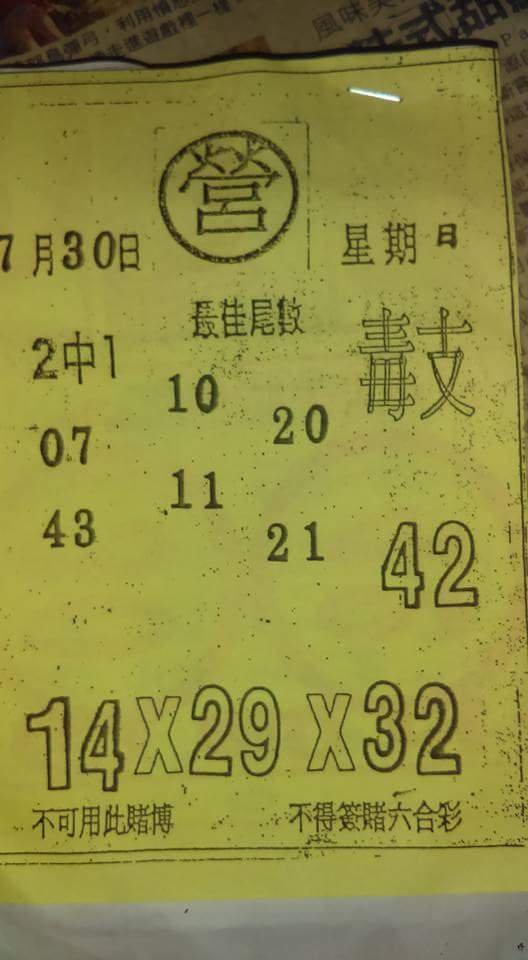 營
7月30日
星期日
最佳尾數
毒支
2中1
10
20
07
11
43
21
42
14X29X32
不可用此賭博
不得簽賭六合彩